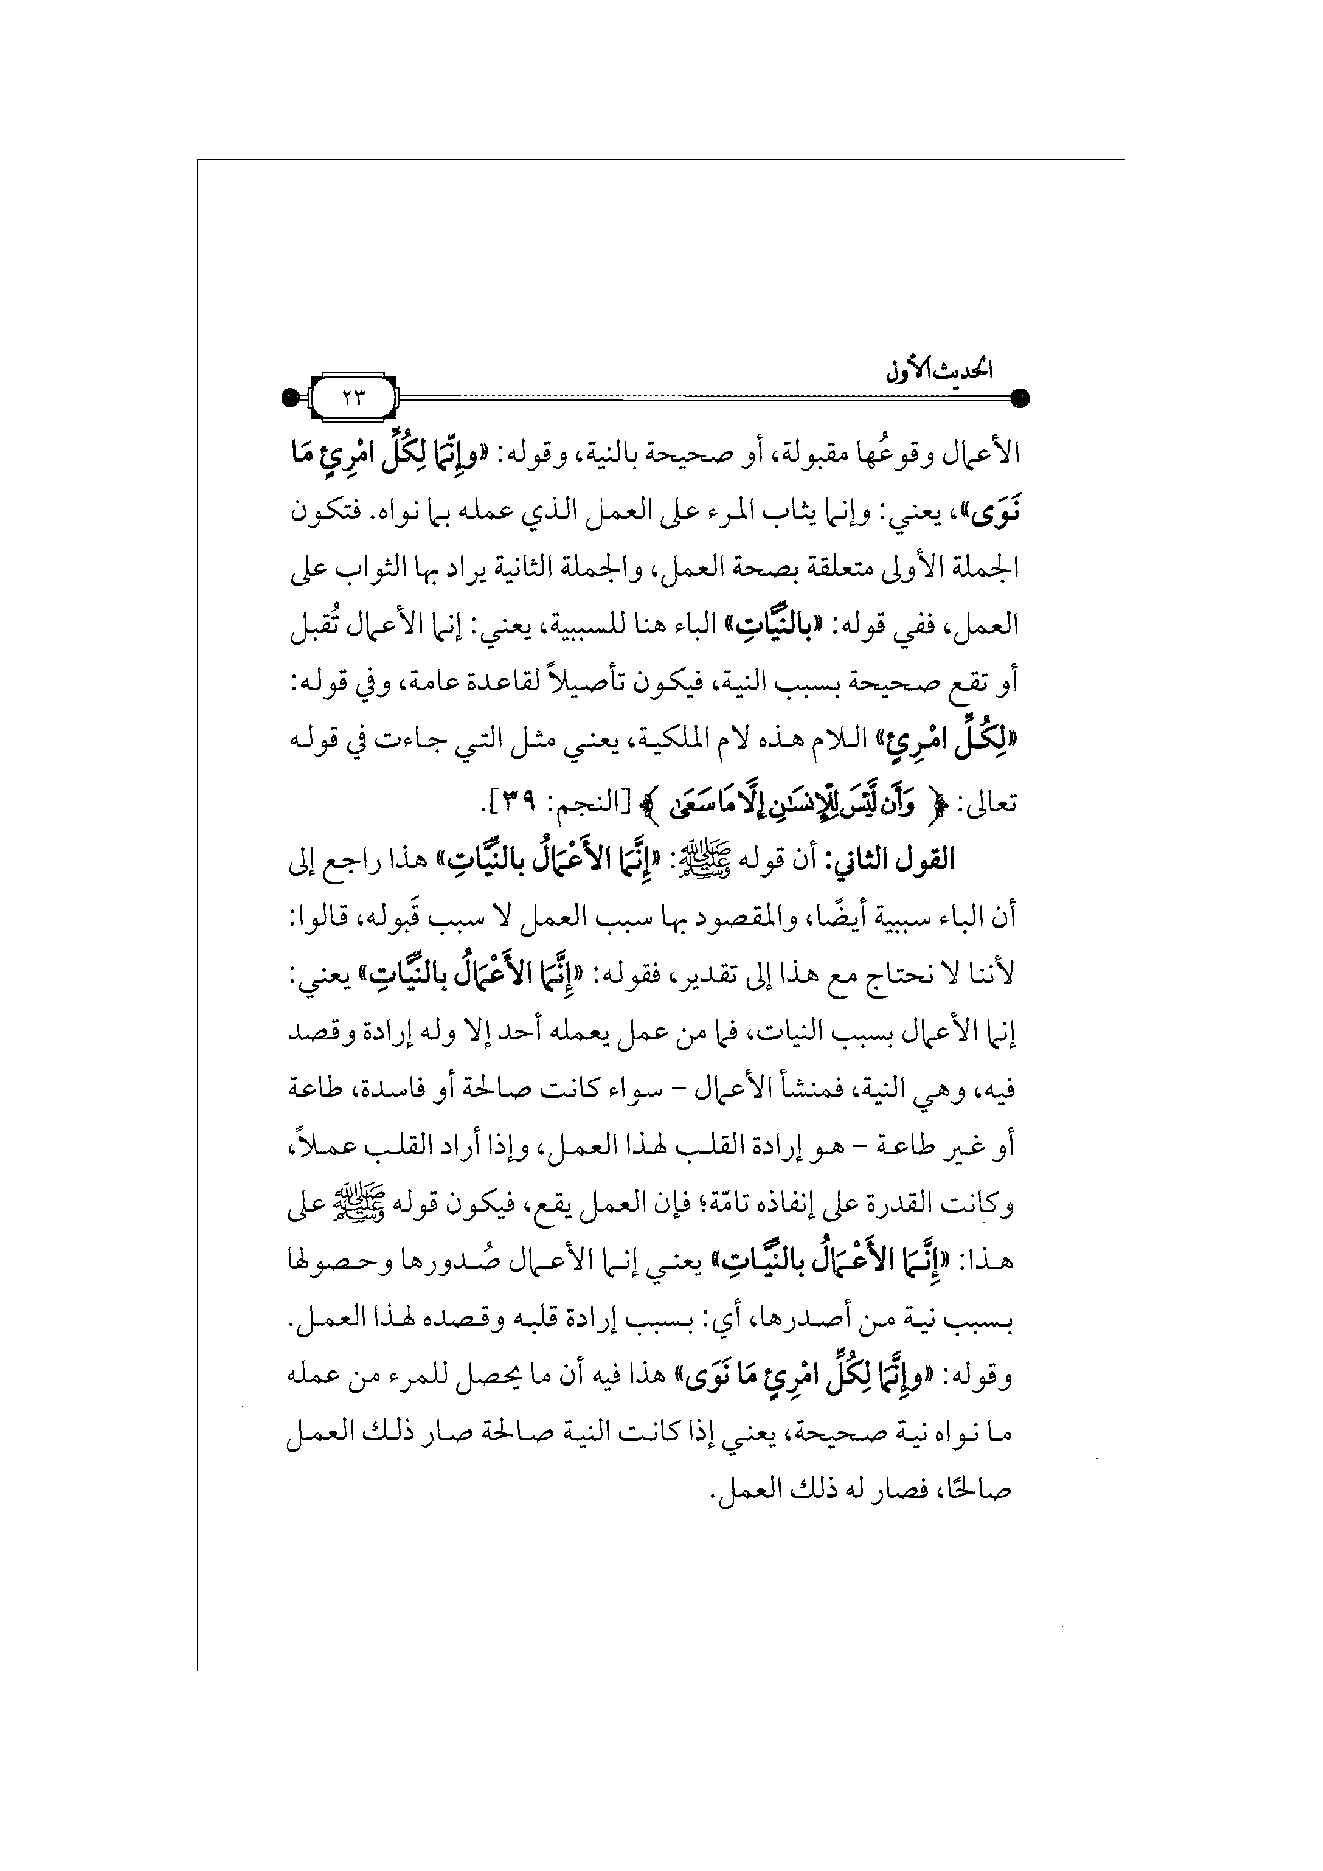 الحديث الأول
٢٣
الأعمال وقوعُها مقبولة، أو صحيحة بالنية، وقوله: «وإِنَّمَا لِكُلِّ امْرِئٍ مَا
نَوَى»، يعني: وإنما يثاب المرء على العمل الذي عمله بما نواه. فتكون
الجملة الأولى متعلقة بصحة العمل، والجملة الثانية يراد بها الثواب على
العمل، ففي قوله: «بالنِّيَّاتِ» الباء هنا للسببية، يعني: إنما الأعمال تُقبل
أو تقع صحيحة بسبب النية، فيكون تأصيلاً لقاعدة عامة، وفي قوله:
«لِكُلِّ امْرِئٍ» اللام هذه لام الملكية، يعني مثل التي جاءت في قوله
تعالى: ﴿ وَأَن لَّيْسَ لِلْإِنسَٰنِ إِلَّا مَا سَعَىٰ ﴾ [النجم: ٣٩].
القول الثاني: أن قوله ﷺ: «إِنَّمَا الأَعْمَالُ بالنِّيَّاتِ» هذا راجع إلى
أن الباء سببية أيضًا، والمقصود بها سبب العمل لا سبب قَبوله، قالوا:
لأننا لا نحتاج مع هذا إلى تقدير، فقوله: «إِنَّمَا الأَعْمَالُ بالنِّيَّاتِ» يعني:
إنما الأعمال بسبب النيات، فما من عمل يعمله أحد إلا وله إرادة وقصد
فيه، وهي النية، فمنشأ الأعمال – سواء كانت صالحة أو فاسدة، طاعة
أو غير طاعة – هو إرادة القلب لهذا العمل، وإذا أراد القلب عملاً،
وكانت القدرة على إنفاذه تامّة؛ فإن العمل يقع، فيكون قوله ﷺ على
هذا: «إِنَّمَا الأَعْمَالُ بالنِّيَّاتِ» يعني إنما الأعمال صُدورها وحصولها
بسبب نية من أصدرها، أي: بسبب إرادة قلبه وقصده لهذا العمل.
وقوله: «وإِنَّمَا لِكُلِّ امْرِئٍ مَا نَوَى» هذا فيه أن ما يحصل للمرء من عمله
ما نواه نية صحيحة، يعني إذا كانت النية صالحة صار ذلك العمل
صالحًا، فصار له ذلك العمل.